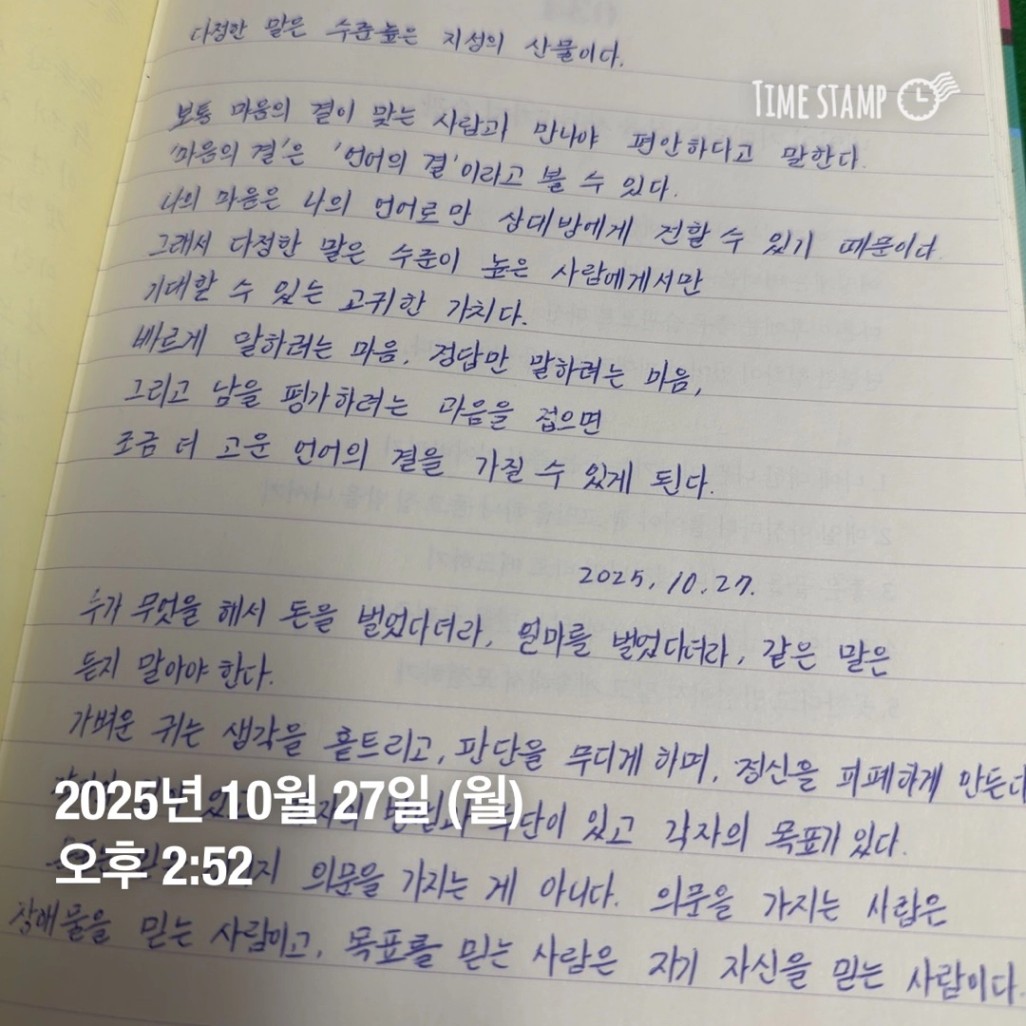 다정한 말은 수준높은 지성의 산물이다.
TIME STAMP
보통 마음의 결이 맞는 사람과 만나야 편안하다고 말한다.
'마음의 결'은 '언어의 결'이라고 볼 수 있다.
나의 마음은 나의 언어로만 상대방에게 전할 수 있기 때문이다.
그래서 다정한 말은 수준이 높은 사람에게서만
기대할 수 있는 고귀한 가치다.
바르게 말하려는 마음, 정답만 말하려는 마음,
그리고 남을 평가하려는 마음을 접으면
조금 더 고운 언어의 결을 가질 수 있게 된다.
2025. 10. 27.
누가 무엇을 해서 돈을 벌었다더라, 얼마를 벌었다더라, 같은 말은
듣지 말아야 한다.
가벼운 귀는 생각을 흩트리고, 판단을 무디게 하며, 정신을 피폐하게 만든다
있고 각자의 목표가 있다.
2025년 10월 27일 (월)
의문을 가지는 게 아니다. 의문을 가지는 사람은
오후 2:52
장애물을 믿는 사람이고, 목표를 믿는 사람은 자기 자신을 믿는 사람이다.